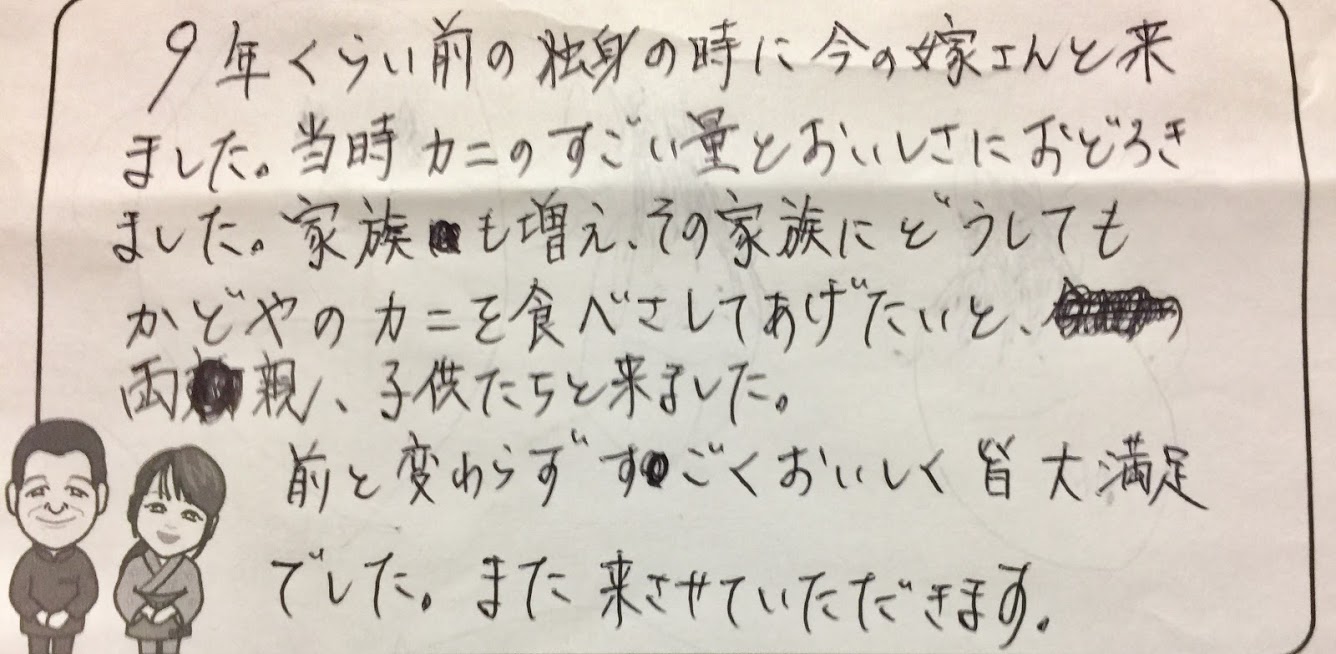 9年くらい前の独身の時に今の嫁さんと来
ました。当時カニのすごい量とおいしさにおどろき
ました。家族も増え、その家族にどうしても
かどやのカニを食べさしてあげたいと、
両親、子供たちと来ました。
前と変わらずすごくおいしく皆大満足
でした。また来させていただきます。